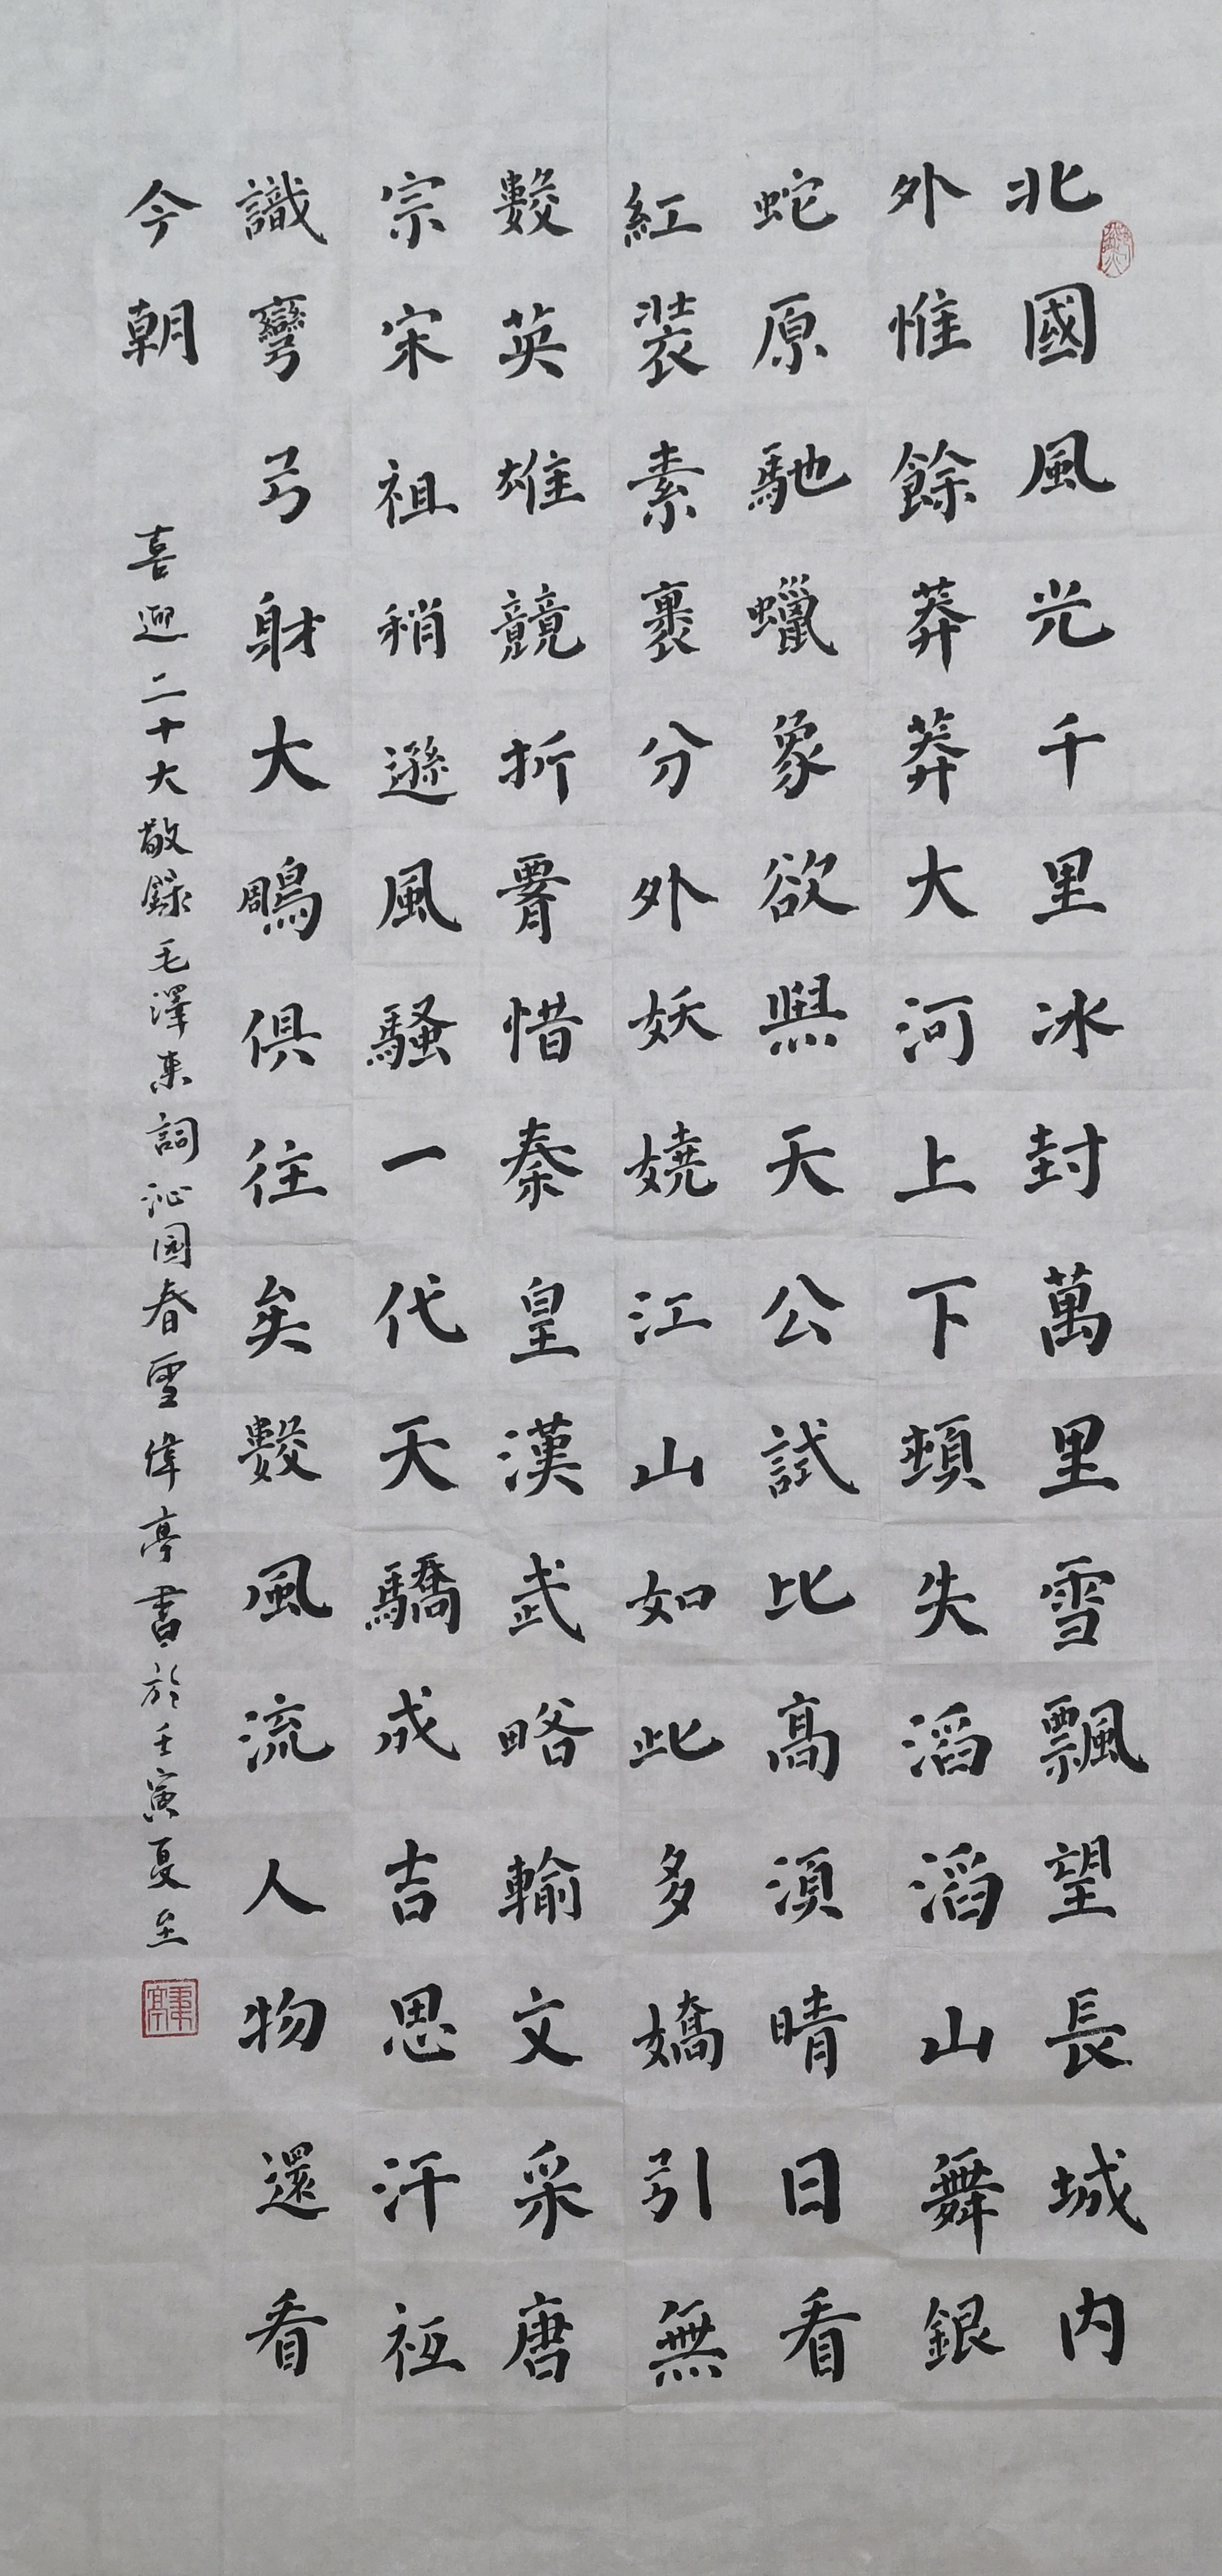 北國風光千里冰封萬里雪飄望長城内
外惟餘莽莽大河上下頓失滔滔山舞銀
蛇原馳蠟象欲與天公試比高須晴日看
紅裝素裹分外妖嬈江山如此多嬌引無
數英雄競折腰惜秦皇漢武略輸文采唐
宗宋祖稍遜風騷一代天驕成吉思汗祗
識彎弓射大鵰俱往矣數風流人物還看
今朝
喜迎二十大敬錄毛澤東詞沁園春雪偉亭書於壬寅夏至